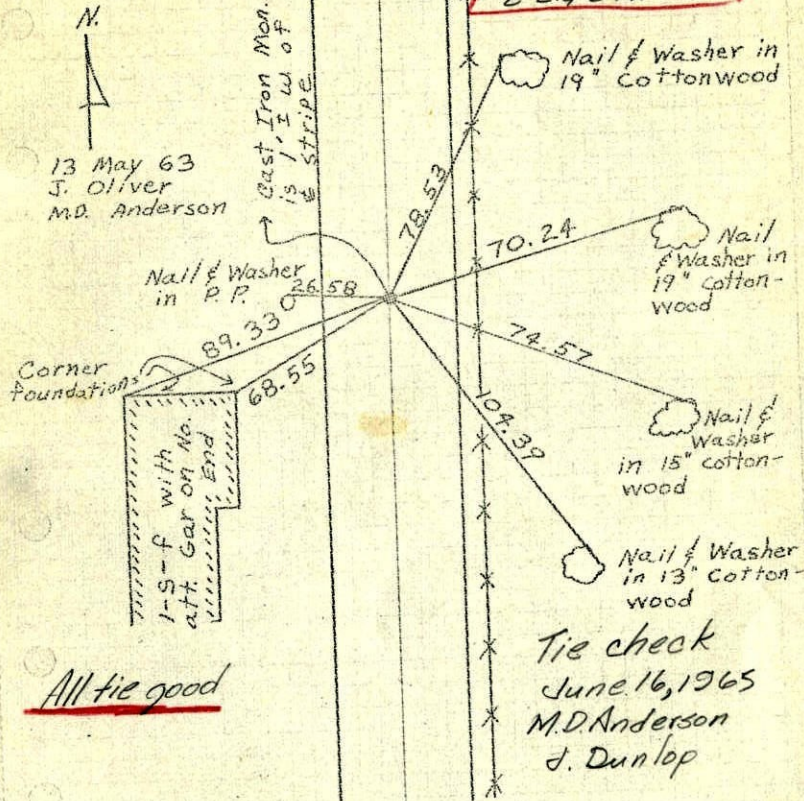 N.
13 May 63
J. Oliver
M.D. Anderson
Cast Iron Mon.
is 1.1 W. of
℄ stripe
Nail & Washer in
19" Cottonwood
78.53
70.24
Nail
& Washer in
19" cotton-
wood
Nail & Washer
in P.P.
26.58
89.33
68.55
74.57
104.39
Corner
foundations
Nail &
Washer
in 15" cotton-
wood
1-S-f with
att. Gar on No.
End
Nail & Washer
in 13" Cotton-
wood
All tie good
Tie check
June 16, 1965
M.D. Anderson
J. Dunlop